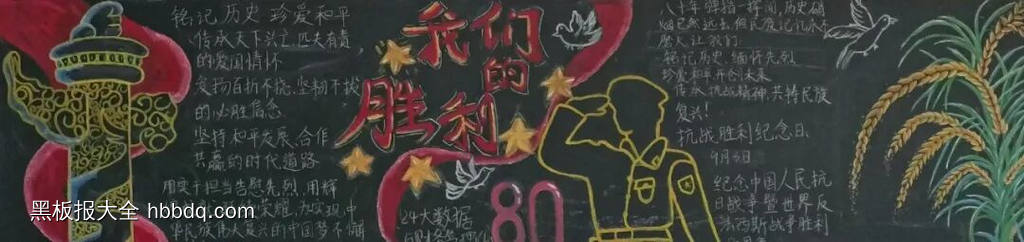 铭记历史 珍爱和平
传承天下兴亡 匹夫有责
的爱国情怀
发扬百折不挠、坚韧不拔
的必胜信念
坚持和平发展、合作
共赢的时代道路
用实干担当告慰先烈,用辉
中
华民族伟大复兴的中国梦不懈
我们
的
胜利
24大数据
80
八十年弹指一挥间,历史硝
烟已然远去,但民族记忆永
让我们
铭记历史,缅怀先烈
珍爱和平 开创未来
传承抗战精神,共铸民族
复兴!
抗战胜利纪念日
9月3日
纪念中国人民抗
日战争暨世界反
法西斯战争胜利
黑板报大全 hbbdq.com